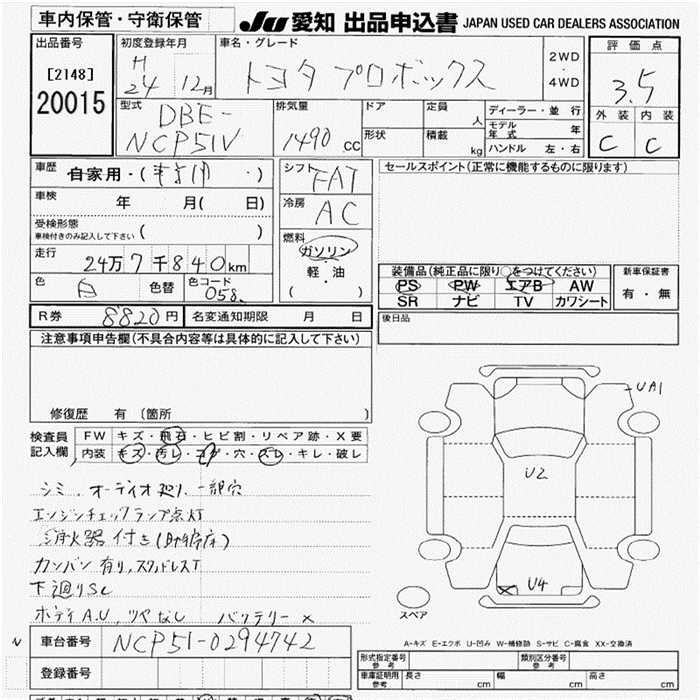 車内保管・守衛保管
JU 愛知 出品申込書 JAPAN USED CAR DEALERS ASSOCIATION
出品番号
[2148]
20015
初度登録年月
H
24 12月
車名・グレード
トヨタ プロボックス
2WD
・
4WD
評価点
3.5
外装 内装
C C
型式
DBE-
NCP51V
排気量
1490 cc
ドア
形状
定員 人
積載 kg
ディーラー・並行
モデル年式 年
ハンドル 左・右
車歴
自家用・( ・)
車検 年 月( 日)
受検形態
車検付きのみ記入して下さい ( )
走行
24万7千840km
色 白 色替 色コード
058
シフト
FAT
冷房
AC
燃料
ガソリン
軽・油
( )
セールスポイント(正常に機能するものに限ります)
装備品(純正品に限り○をつけてください)
PS PW エアB AW
SR ナビ TV カワシート
新車保証書
有・無
R券 8820円 名変通知期限 月 日
後日品
注意事項申告欄(不具合内容等は具体的に記入して下さい)
修復歴 有(箇所 )
検査員
記入欄
FW キズ・飛石・ヒビ割・リペア跡・X要
内装 キズ・汚レ・コゲ・穴・スレ・キレ・破レ
シミ、オーディオ廻り一部穴
エンジンチェックランプ点灯
消火器付き
カンバン有り、スタッドレスT
下廻りSC
ボディA.U、ツヤなし バッテリーX
UA1
U2
U4
スペア
A-キズ E-エクボ U-凹み W-補修跡 S-サビ C-腐食 XX-交換済
車台番号 NCP51-0294742
登録番号
形式指定番号
参考
類別区分番号
参考
車庫証明用
参考
長さ cm 幅 cm 高さ cm